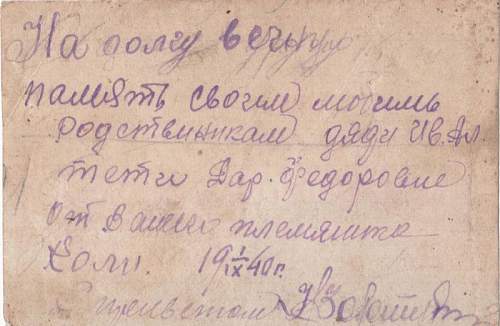 На долгу вечную
память своим моимь
родствиникам дяди Ив. Ал
тети Дар. Федоровне
от вашего племяника
Коли. 19 1/IX 40 г.
с приветом